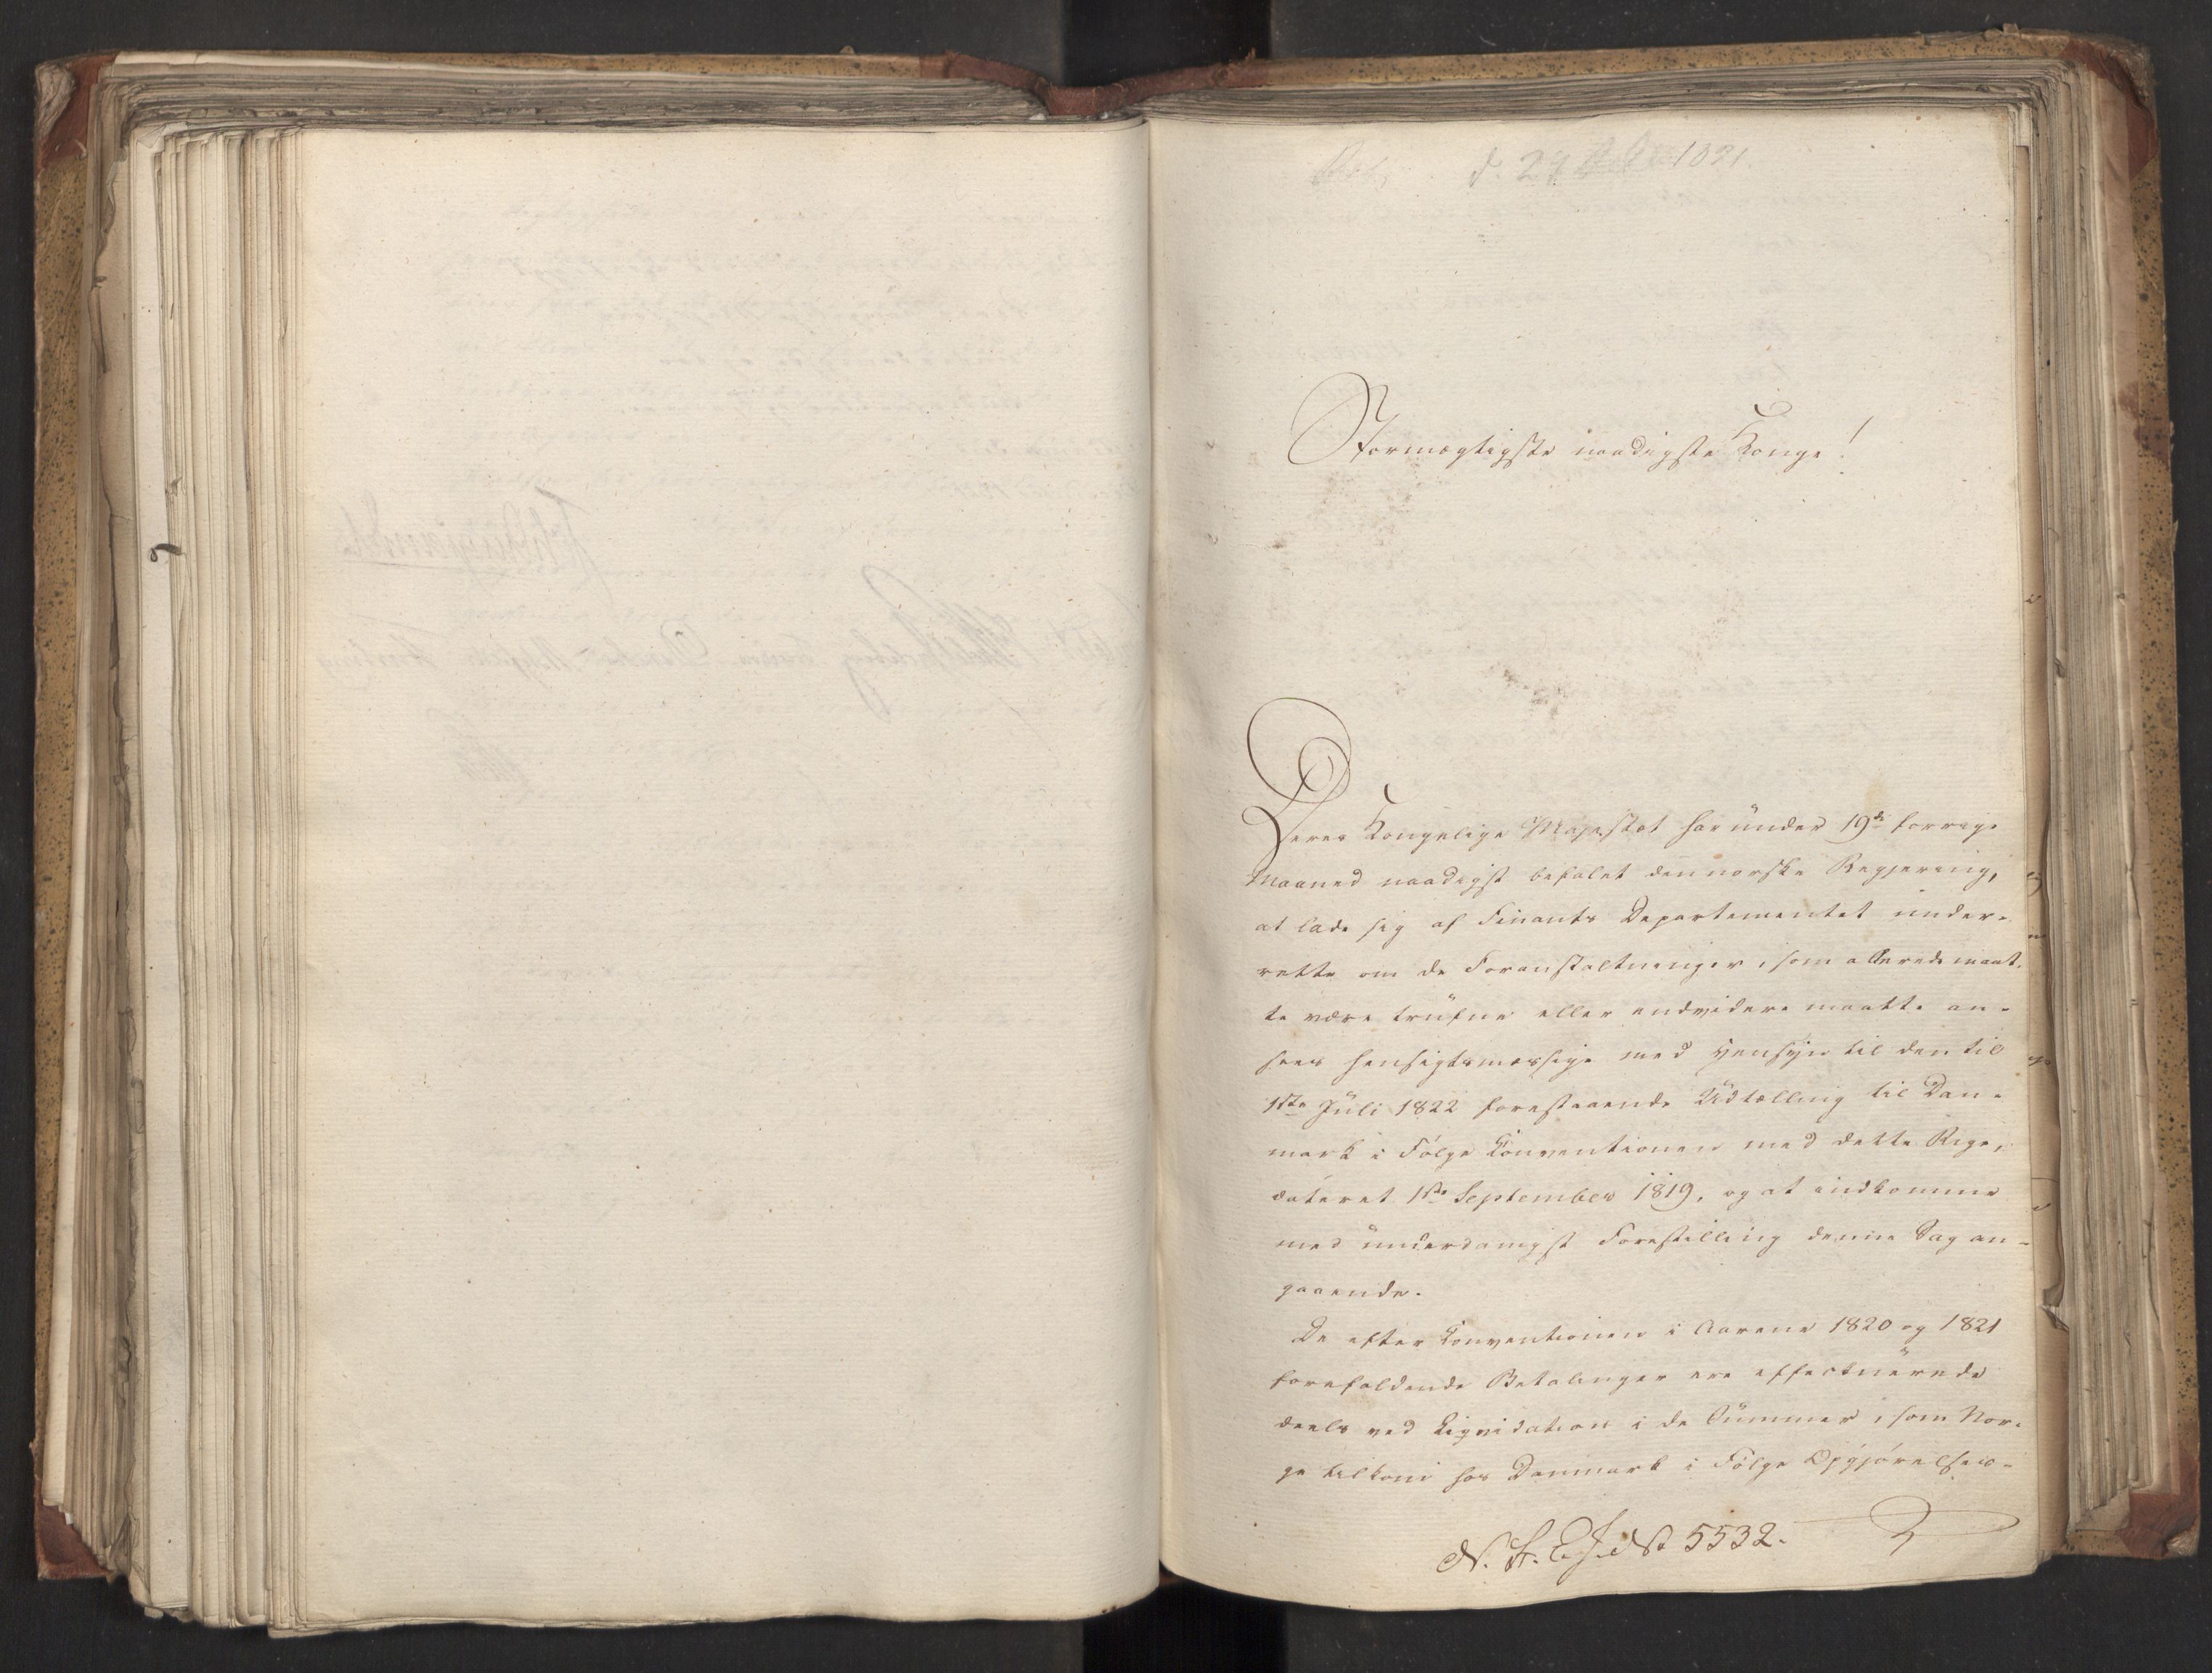 d. 24 1821.
Stormægtigste naadigste Konge!
Deres Kongelige Majestæt har under 19de forrige
Maaned naadigst befalet den norske Regjering,
at lade sig af Finants Departementet under-
rette om de Foranstaltninger, som allerede maat-
te være trufne eller endvidere maatte an-
sees hensigtsmæssige med Hensyn til den til
1ste Juli 1822 forestaaende Udtælling til Dan-
mark i Følge Konventionen med dette Rige,
dateret 1ste September 1819, og at indkomme
med underdanigst Forestilling denne Sag an-
gaaende.
De efter Konventionen i Aarene 1820 og 1821
forefaldende Betalinger ere effectuerede
deels ved Liqvidation i de Summer, som Nor-
ge tilkom hos Danmark i Følge Opgjørelses-
5532.